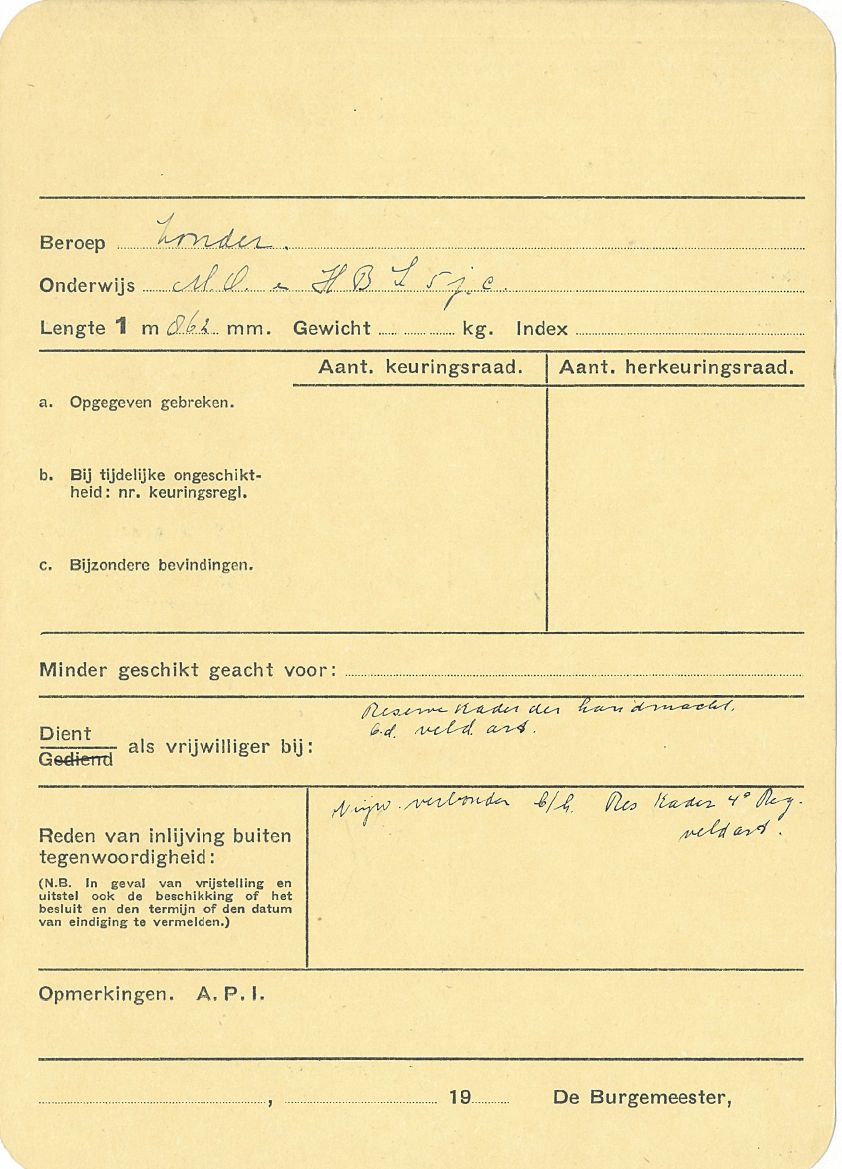 Beroep zonder.
Onderwijs M.O. e HBS 5 j.c.
Lengte 1 m 862 mm. Gewicht kg. Index
Aant. keuringsraad. Aant. herkeuringsraad.
a. Opgegeven gebreken.
b. Bij tijdelijke ongeschikt-
heid: nr. keuringsregl.
c. Bijzondere bevindingen.
Minder geschikt geacht voor:
Reserve Kader der landmacht.
b.d. veld. art.
Dient
Gediend
als vrijwilliger bij:
Vrijw. verbonden b/h. Res Kader 4e Reg.
veldart.
Reden van inlijving buiten
tegenwoordigheid:
(N.B. In geval van vrijstelling en
uitstel ook de beschikking of het
besluit en den termijn of den datum
van eindiging te vermelden.)
Opmerkingen. A. P. I.
, 19 De Burgemeester,